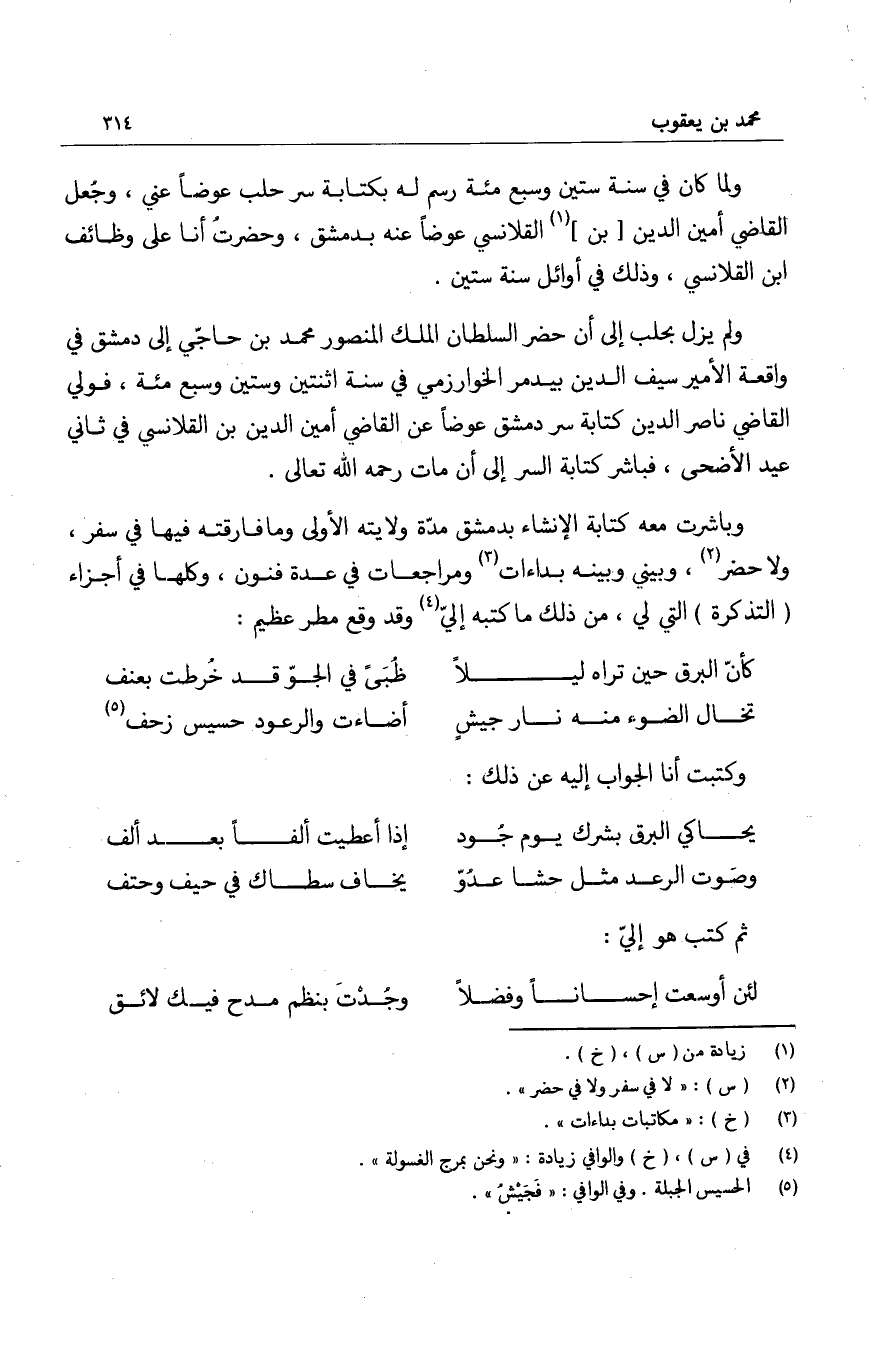 محمد بن يعقوب ٣١٤
ولما كان في سنة ستين وسبع مئة رسم له بكتابة سر حلب عوضاً عني ، وجُعل
القاضي أمين الدين [ بن ](١) القلانسي عوضاً عنه بدمشق ، وحضرتُ أنا على وظائف
ابن القلانسي ، وذلك في أوائل سنة ستين .
ولم يزل بحلب إلى أن حضر السلطان الملك المنصور محمد بن حاجّي إلى دمشق في
واقعة الأمير سيف الدين بيدمر الخوارزمي في سنة اثنتين وستين وسبع مئة ، فولي
القاضي ناصر الدين كتابة سر دمشق عوضاً عن القاضي أمين الدين بن القلانسي في ثاني
عيد الأضحى ، فباشر كتابة السر إلى أن مات رحمه الله تعالى .
وباشرت معه كتابة الإنشاء بدمشق مدّة ولايته الأولى ومافارقته فيها في سفر ،
ولا حضر(٢) ، وبيني وبينه بداءات(٣) ومراجعات في عدة فنون ، وكلها في أجزاء
( التذكرة ) التي لي ، من ذلك ما كتبه إليّ(٤) وقد وقع مطر عظيم :
كأنّ البرق حين تراه ليلاً ظُبَىً في الجوّ قد خُرطت بعنف
تخال الضوء منه نار جيشٍ أضاءت والرعود حسيس زحف(٥)
وكتبت أنا الجواب إليه عن ذلك :
يحاكي البرق بشرك يوم جُود إذا أعطيت ألفاً بعد ألف
وصَوت الرعد مثل حشا عدُوّ يخاف سطاك في حيف وحتف
ثم كتب هو إليّ :
لئن أوسعت إحساناً وفضلاً وجُدْتَ بنظم مدح فيك لائق
(١) زيادة من ( س ) ، ( خ ) .
(٢) ( س ) : « لا في سفر ولا في حضر » .
(٣) ( خ ) : « مكاتبات بداءات » .
(٤) في ( س ) ، ( خ ) والوافي زيادة : « ونحن بمرج الغسولة » .
(٥) الحسيس الجبلة . وفي الوافي : « فَجَيْشُ » .